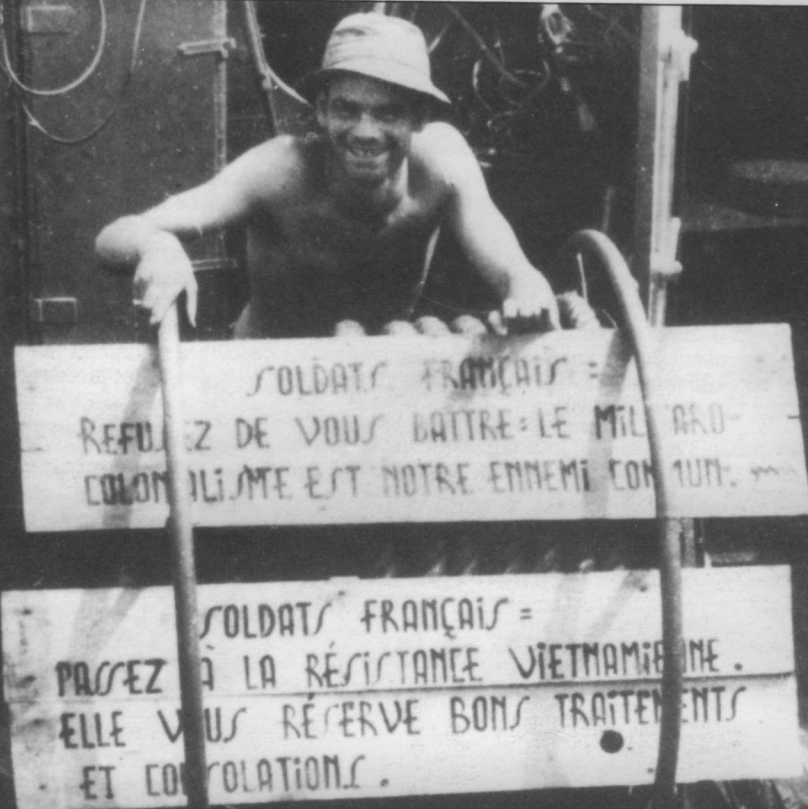 SOLDATS FRANÇAIS =
REFUSEZ DE VOUS BATTRE : LE MILITARO-
COLONIALISME EST NOTRE ENNEMI COMMUN.
SOLDATS FRANÇAIS =
PASSEZ À LA RÉSISTANCE VIETNAMIENNE.
ELLE VOUS RÉSERVE BONS TRAITEMENTS
ET CONSOLATIONS.